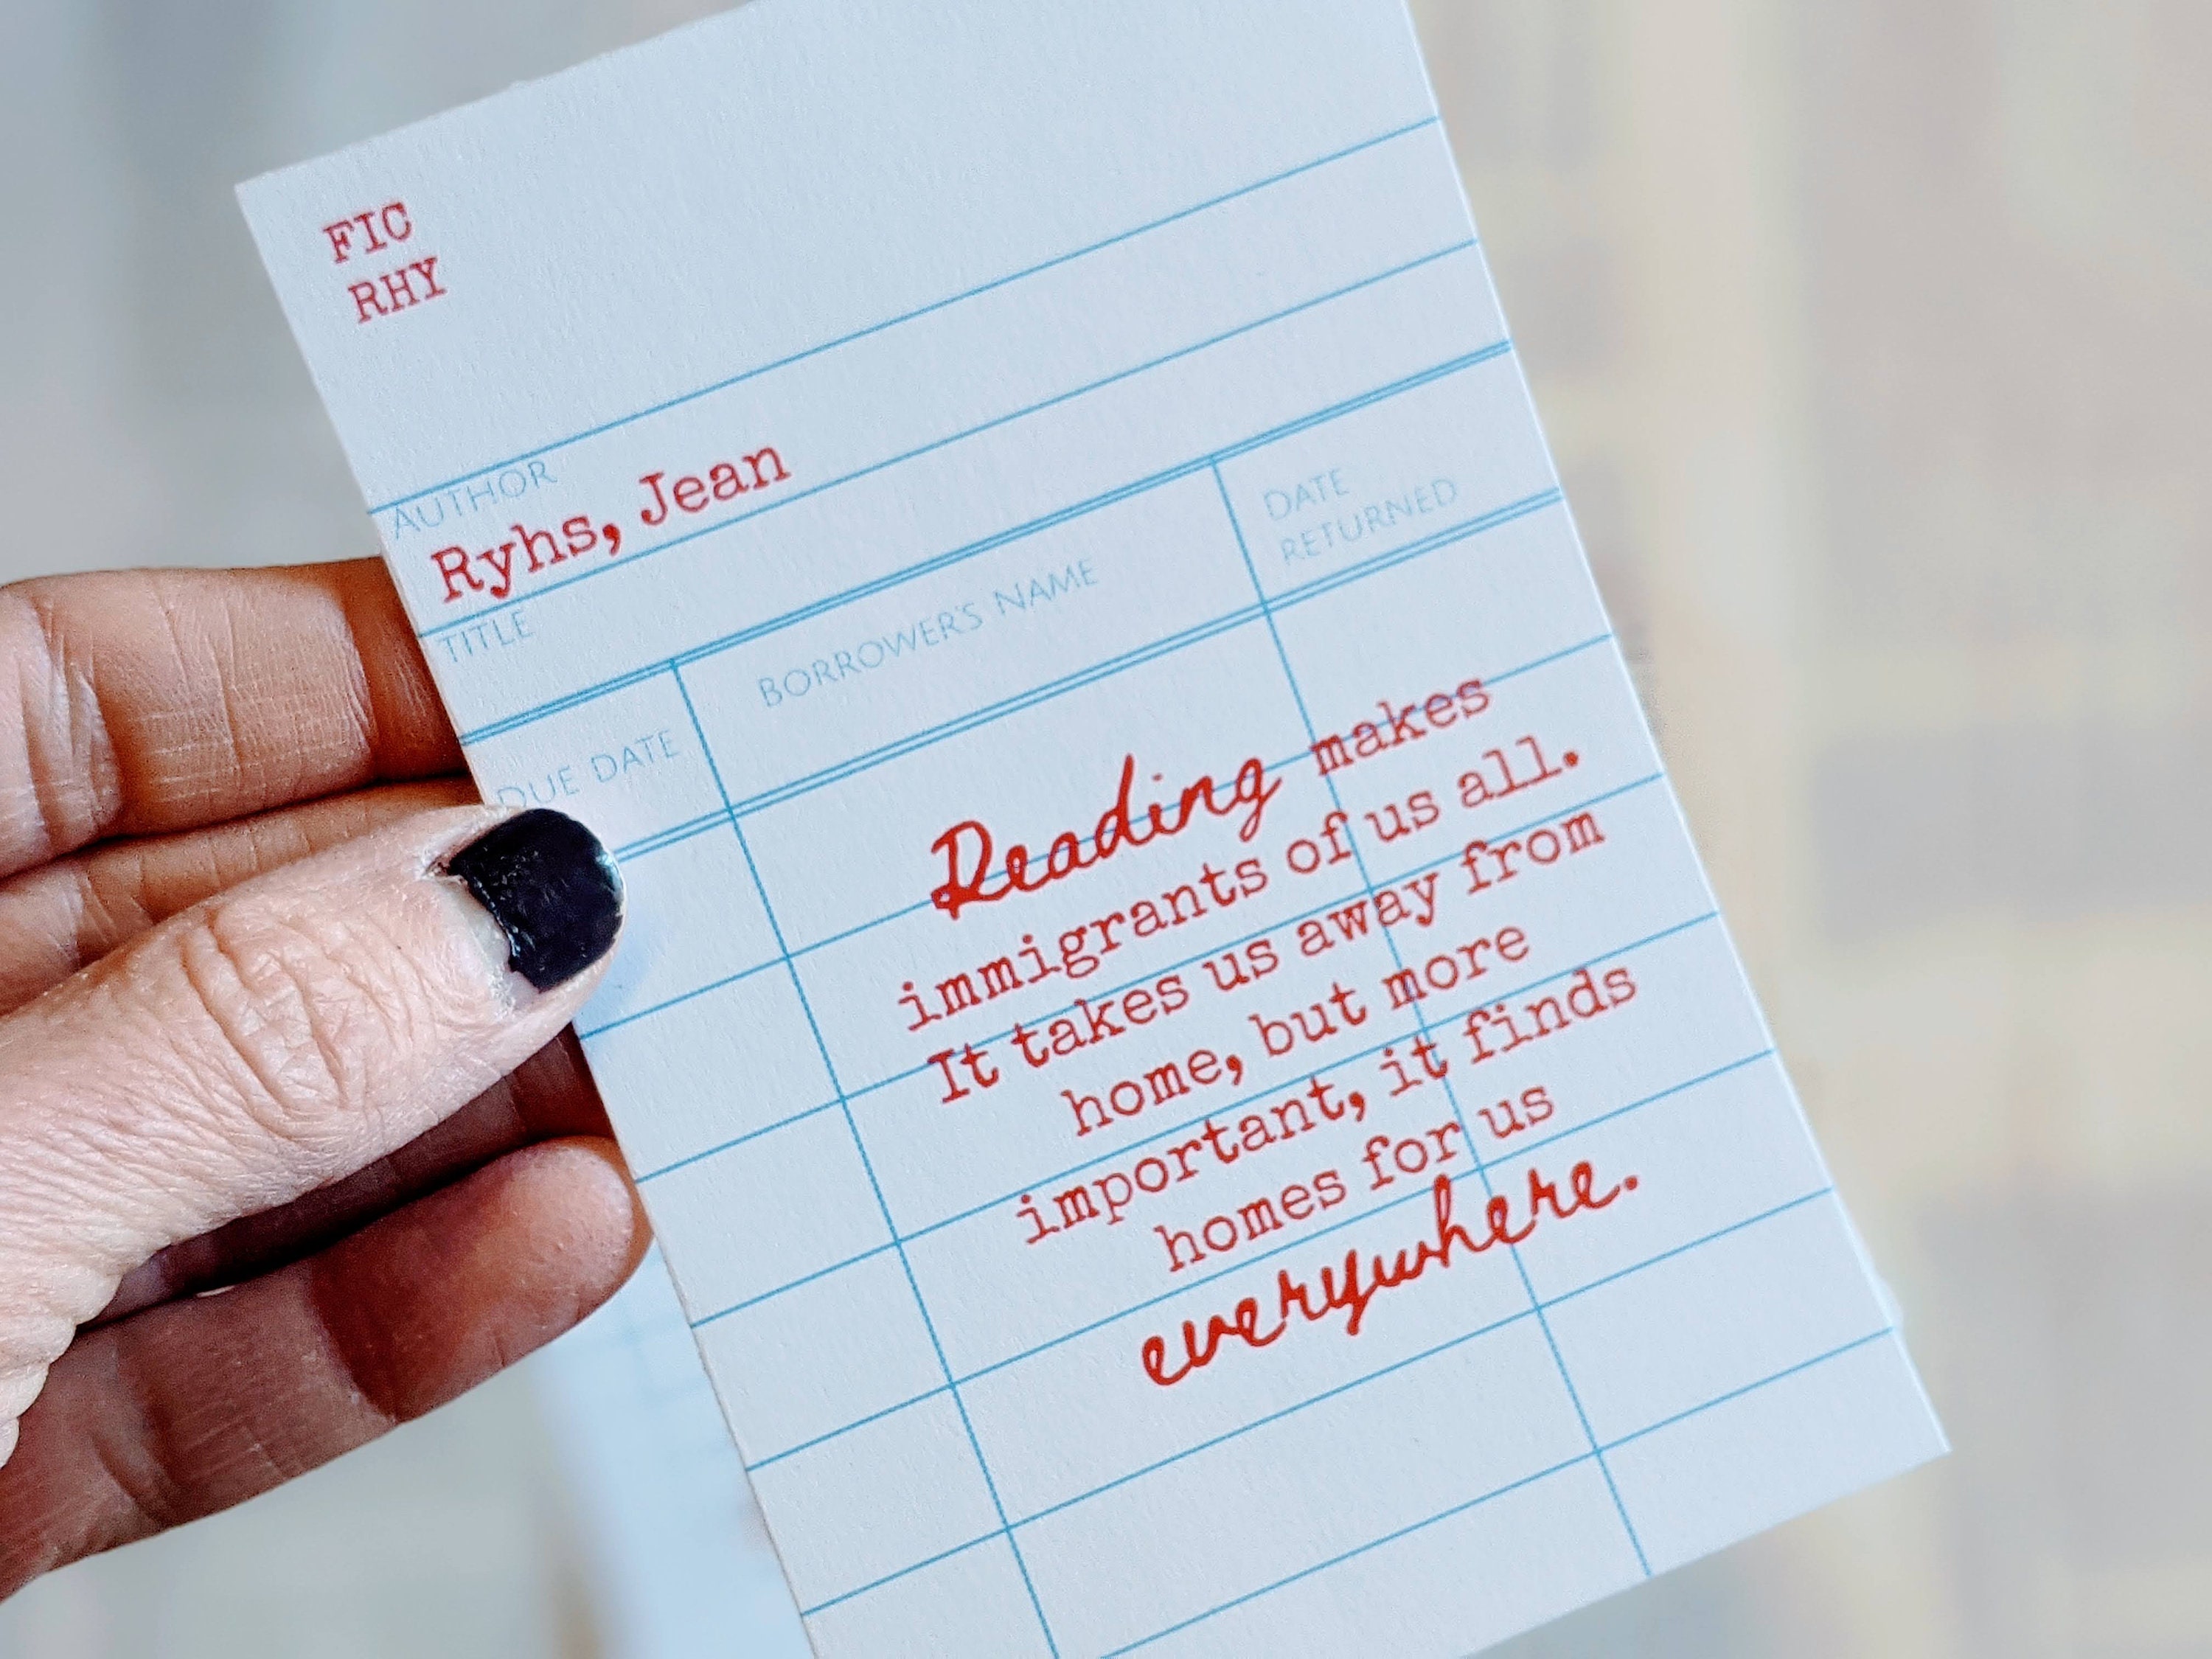 FIC
RHY
AUTHOR
Ryhs, Jean
TITLE
DUE DATE
BORROWER'S NAME
DATE
RETURNED
Reading makes
immigrants of us all.
It takes us away from
home, but more
important, it finds
homes for us
everywhere.